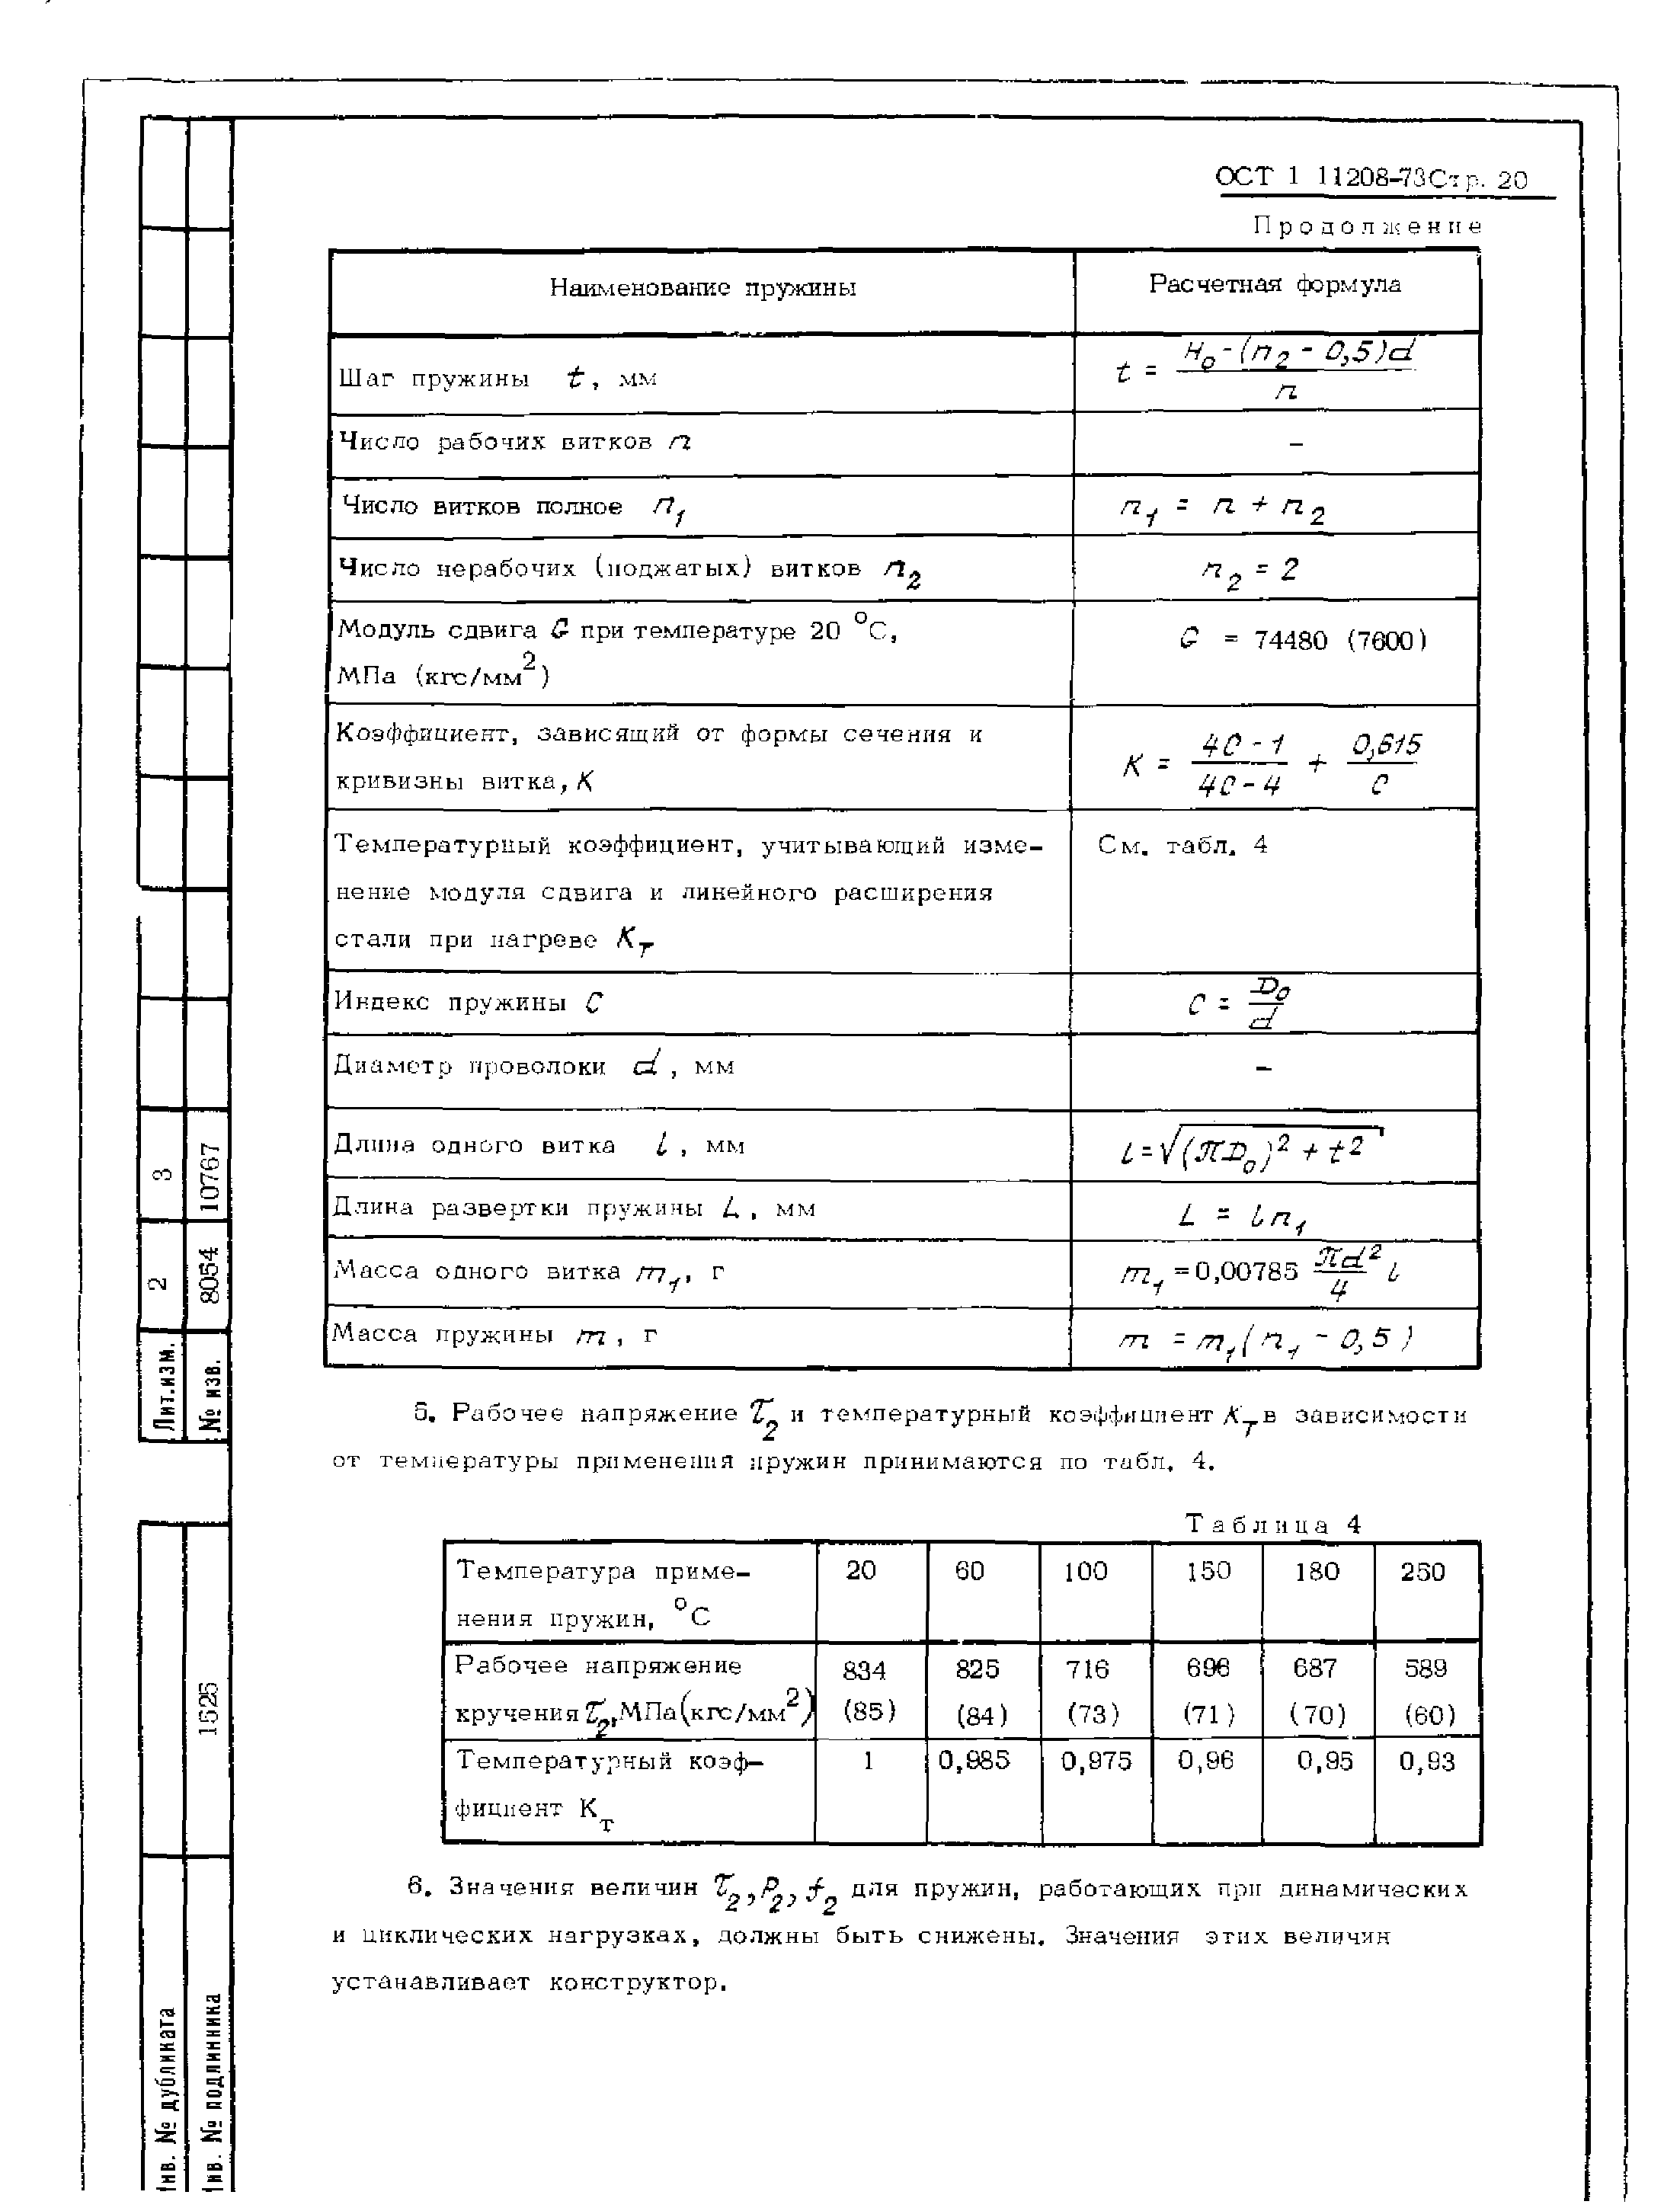 ОСТ 1 11208-73 Стр. 20
Продолжение
Наименование пружины Расчетная формула
Шаг пружины t, мм t = (H₀ - (n₂ - 0,5)d) / n
Число рабочих витков n –
Число витков полное n₁ n₁ = n + n₂
Число нерабочих (поджатых) витков n₂ n₂ = 2
Модуль сдвига G при температуре 20 °С, G = 74480 (7600)
МПа (кгс/мм²)
Коэффициент, зависящий от формы сечения и K = (4C - 1)/(4C - 4) + 0,615/C
кривизны витка, K
Температурный коэффициент, учитывающий изме- См. табл. 4
нение модуля сдвига и линейного расширения
стали при нагреве K_T
Индекс пружины C C = D₀/d
Диаметр проволоки d, мм –
Длина одного витка l, мм l = √((πD₀)² + t²)
Длина развертки пружины L, мм L = l n₁
Масса одного витка m₁, г m₁ = 0,00785 (πd²/4) l
Масса пружины m, г m = m₁(n₁ - 0,5)
5. Рабочее напряжение τ₂ и температурный коэффициент K_T в зависимости
от температуры применения пружин принимаются по табл. 4.
Таблица 4
Температура приме- 20 60 100 150 180 250
нения пружин, °С
Рабочее напряжение 834 825 716 696 687 589
кручения τ₂, МПа(кгс/мм²) (85) (84) (73) (71) (70) (60)
Температурный коэф- 1 0,985 0,975 0,96 0,95 0,93
фициент К_Т
6. Значения величин τ₂, P₂, f₂ для пружин, работающих при динамических
и циклических нагрузках, должны быть снижены. Значения этих величин
устанавливает конструктор.
3 10767
2 8054
Лит.изм. № изв.
1525
Инв. № дубликата
Инв. № подлинника